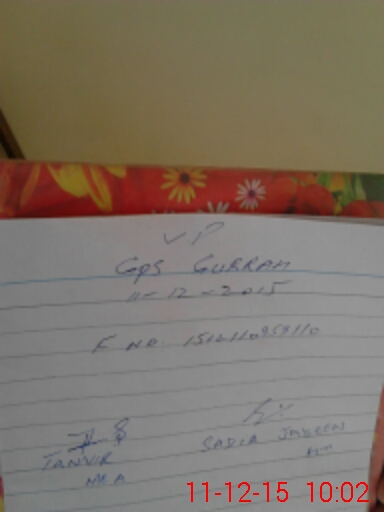 VP
GPS GURRAH
11-12-2015
F NO. 1512110959110
TANVIR
SADIA JABEEN
HT
11-12-15 10:02